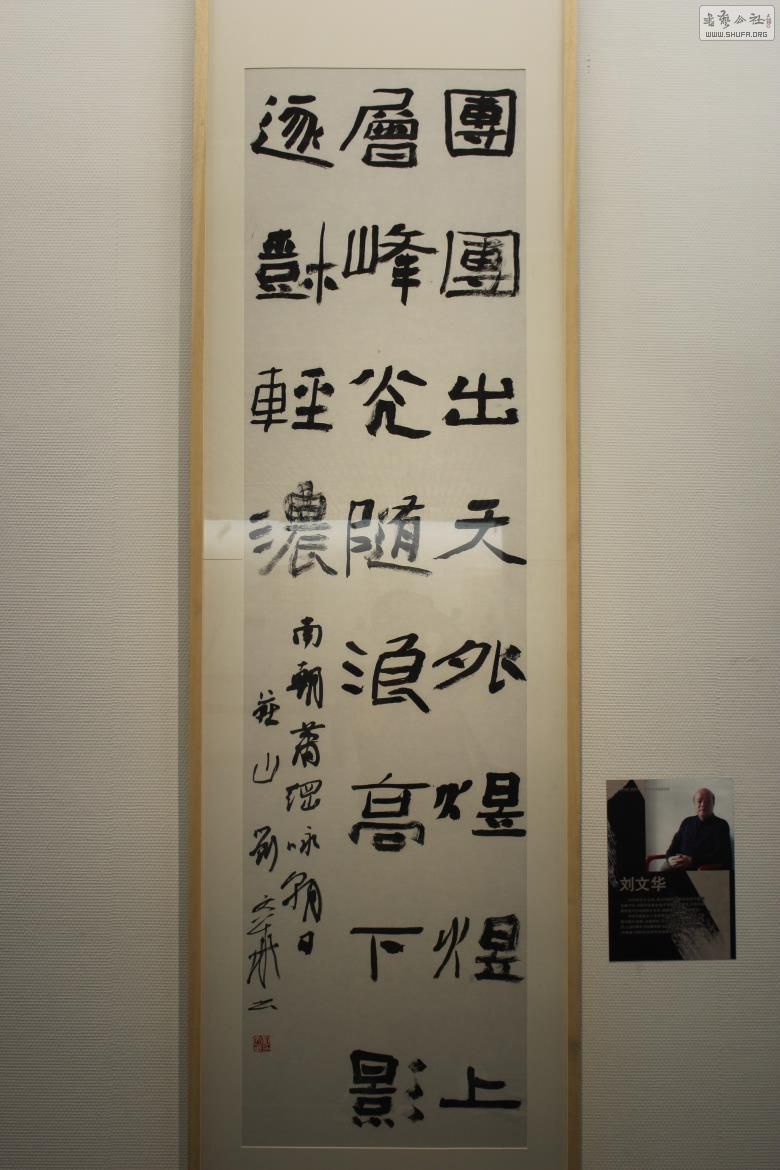 團團出天外煜煜上
層峰光随浪高下影
逐樹輕濃
南朝蕭綱咏朝日
燕山劉文華书
刘文华
書藝公社
WWW.SHUFA.ORG